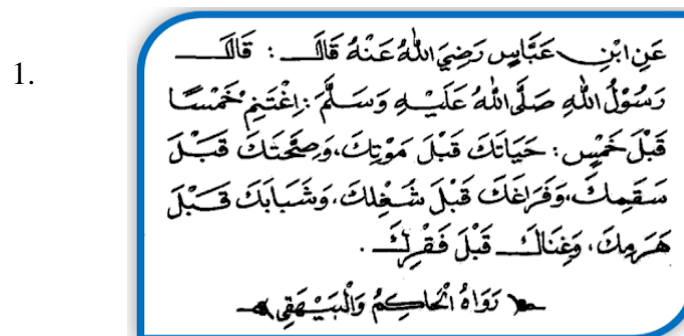 1.
عَنِ ابْنِ عَبَّاسٍ رَضِيَ اللّٰهُ عَنْهُ قَالَ : قَالَ
رَسُوْلُ اللّٰهِ صَلَّى اللّٰهُ عَلَيْهِ وَسَلَّمَ : اِغْتَنِمْ خَمْسًا
قَبْلَ خَمْسٍ : حَيَاتَكَ قَبْلَ مَوْتِكَ، وَصِحَّتَكَ قَبْلَ
سَقَمِكَ، وَفَرَاغَكَ قَبْلَ شَغْلِكَ، وَشَبَابَكَ قَبْلَ
هَرَمِكَ، وَغِنَاكَ قَبْلَ فَقْرِكَ .
رَوَاهُ الْحَاكِمُ وَالْبَيْهَقِي